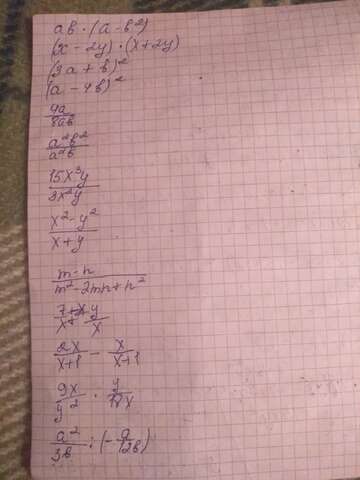 ab · (a - b²)
(x - 2y) · (x + 2y)
(3a + b)²
(a - 4b)²
4a / 8ab
a²b² / a²b
15x³y / 3x²y
x² - y² / x + y
m - n / m² - 2mn + n²
2x / x+1 - x / x+1
9x / y² · y /
a² / 3b : (- a / 12b)